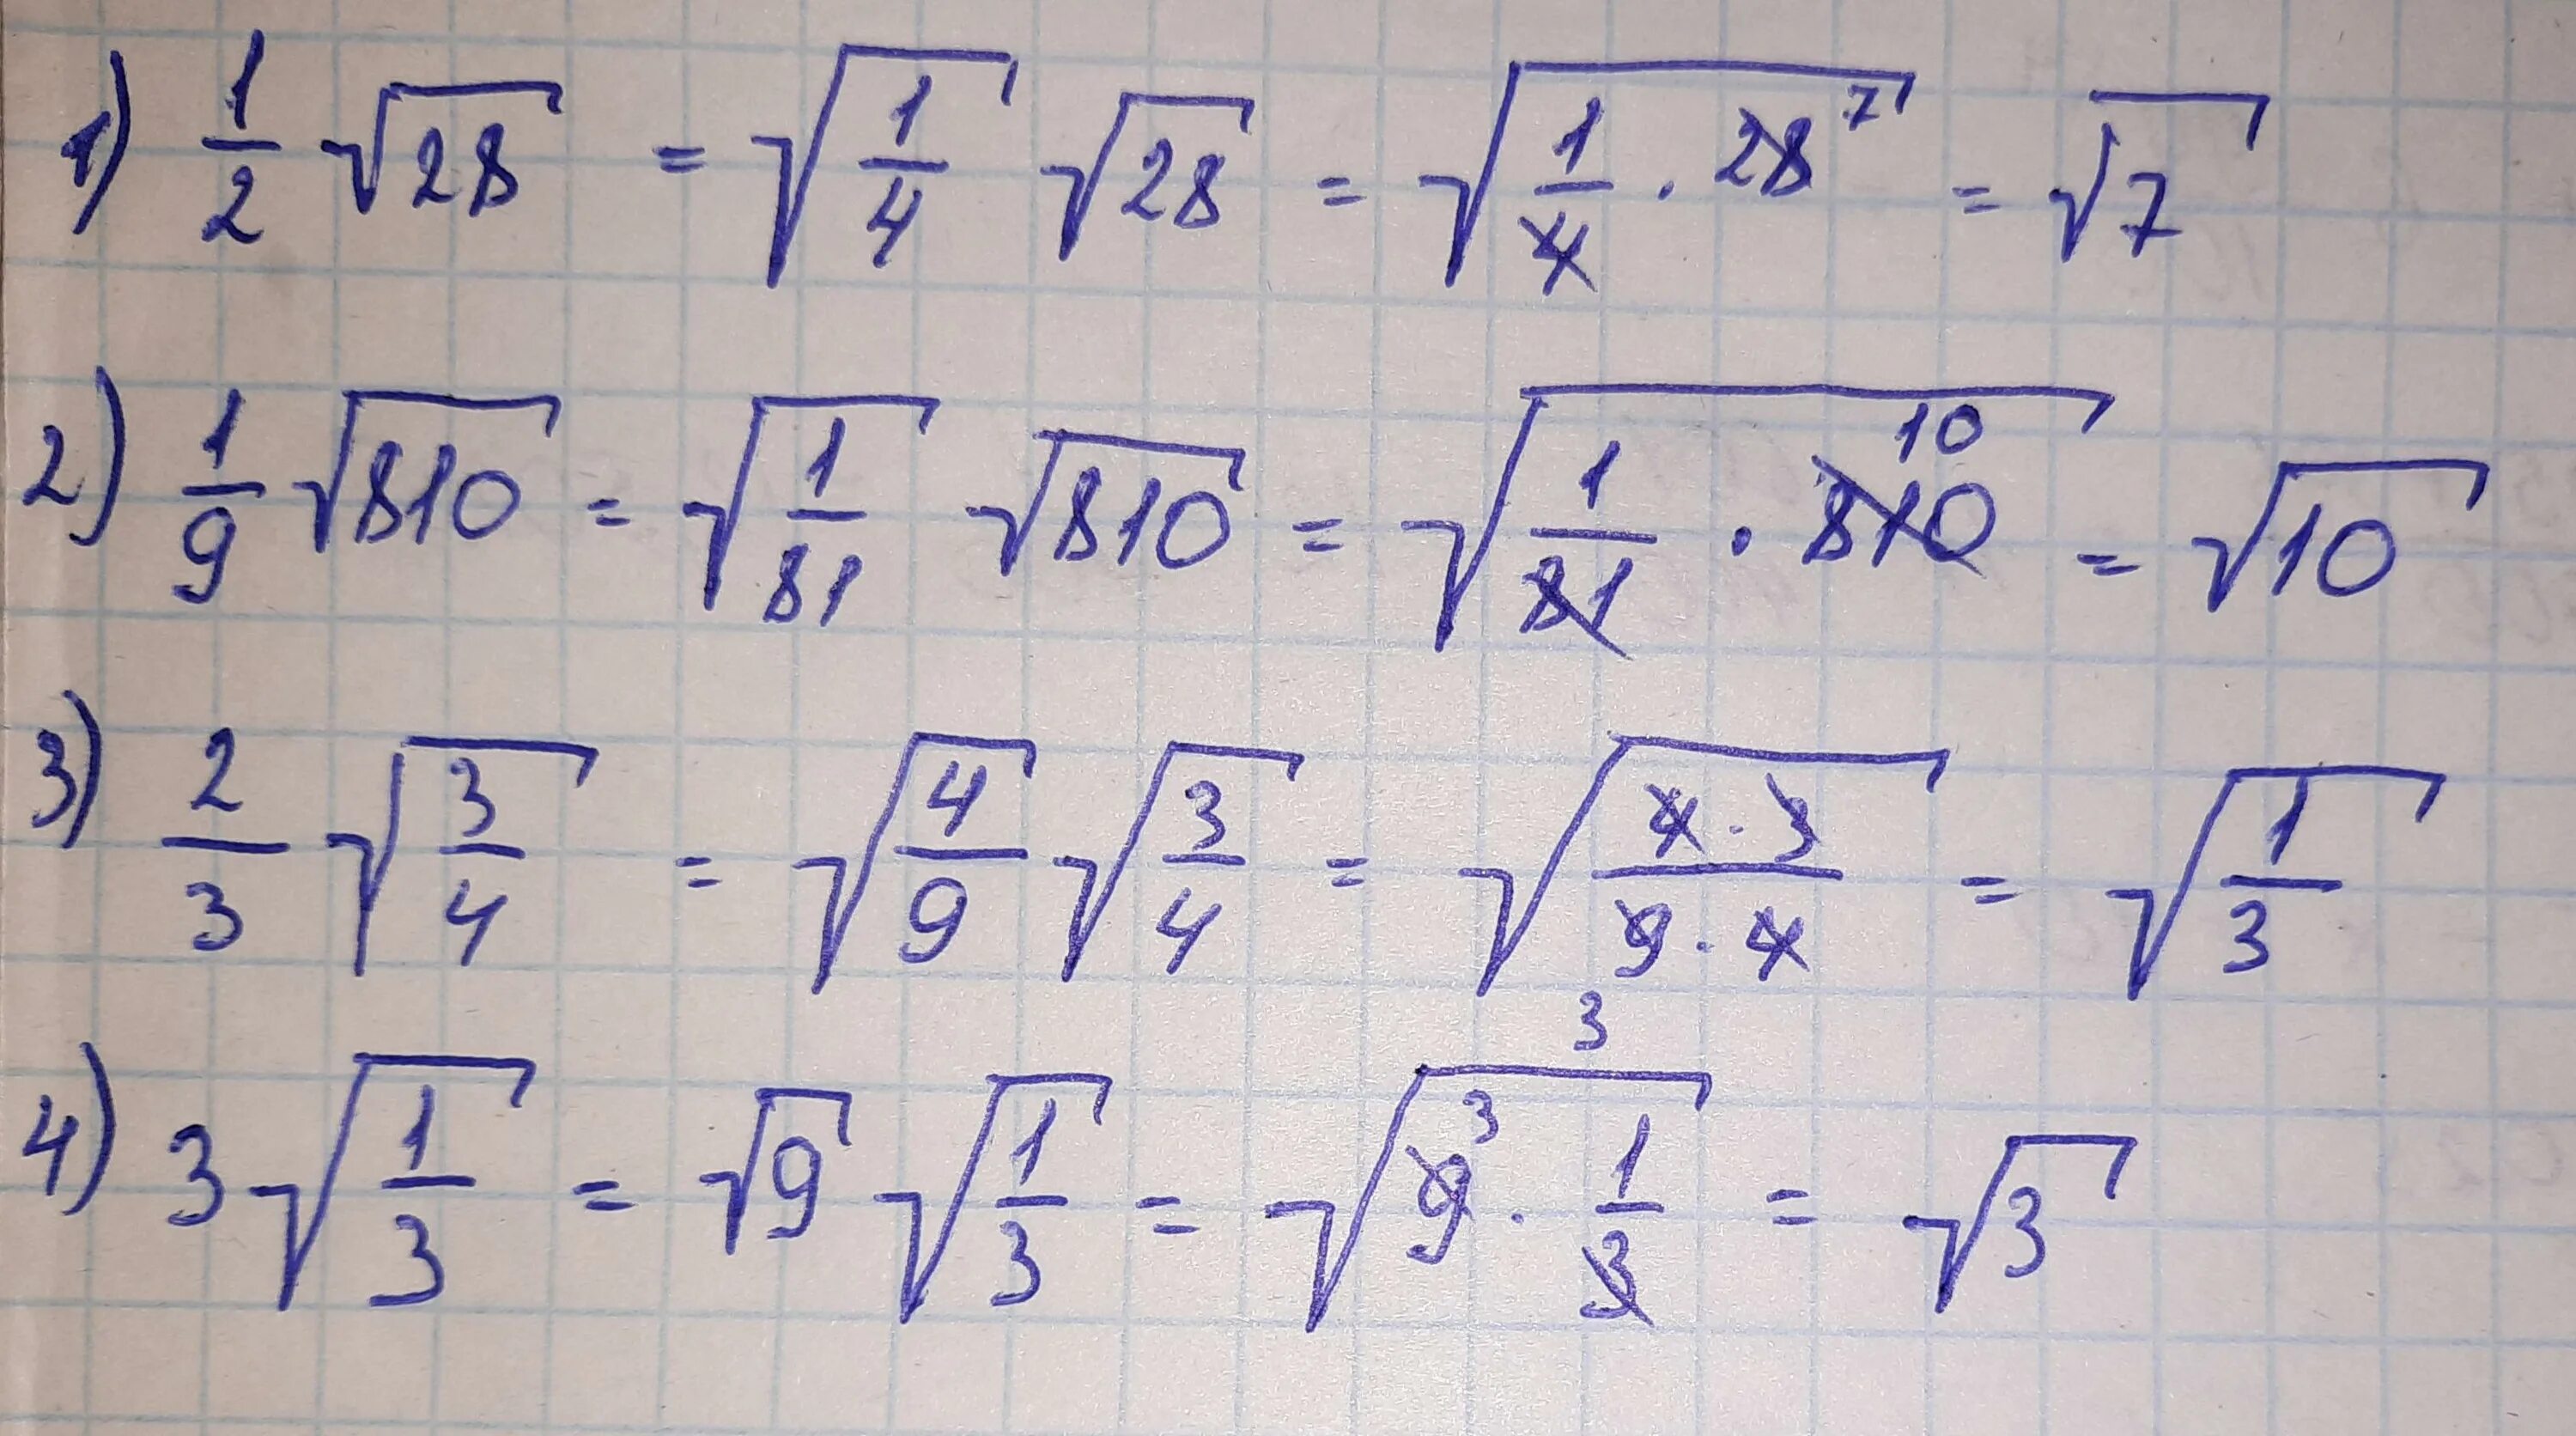 1) 1/2 √28 = √(1/4) √28 = √(1/4 · 28 7) = √7
2) 1/9 √810 = √(1/81) √810 = √(1/81 · 810 10) = √10
3) 2/3 √(3/4) = √(4/9) √(3/4) = √((4 · 3)/(9 · 4)) 3 = √(1/3)
4) 3 √(1/3) = √9 √(1/3) = √(9 3 · 1/3) = √3